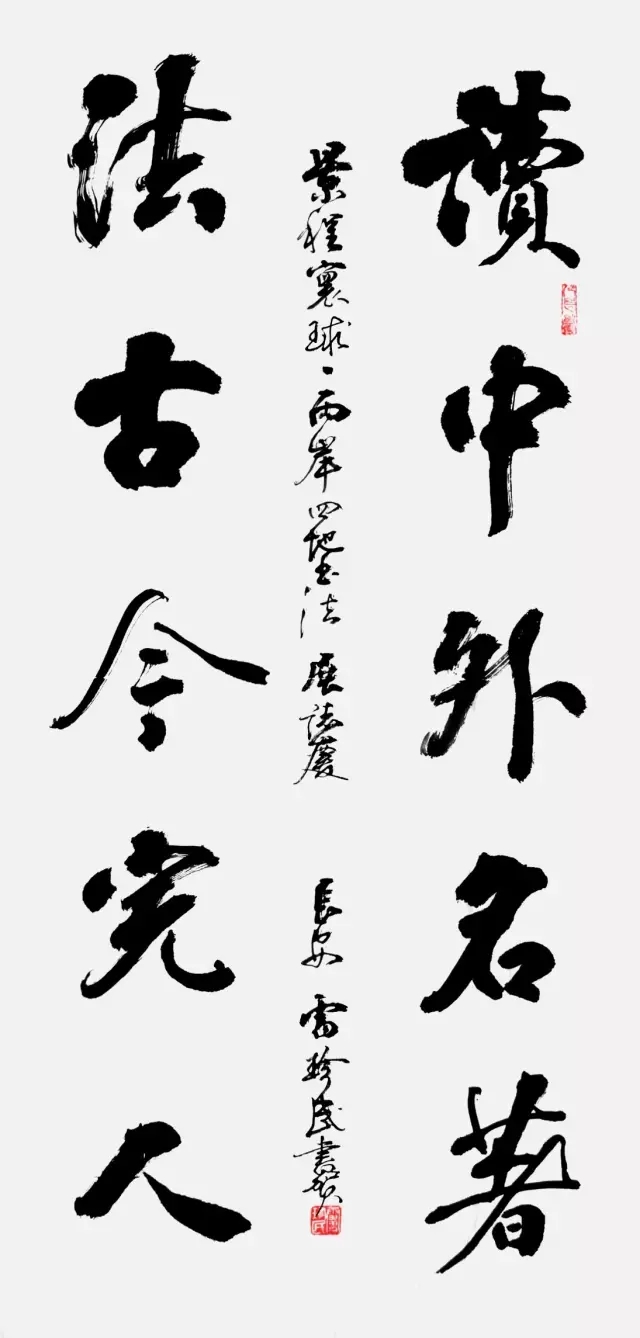 讀中外名著
法古今完人
景程寰球、兩岸四地書法展誌慶
長安 雷珍民書賀